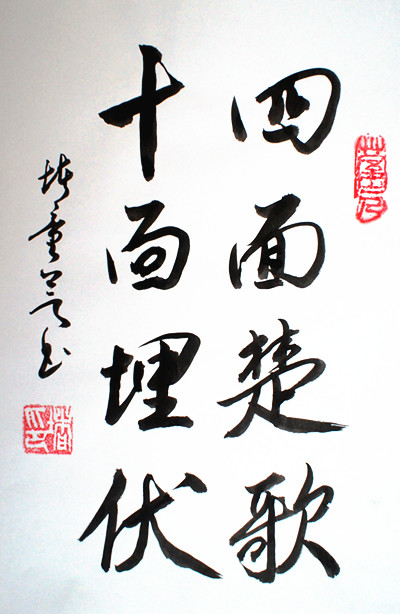 四面楚歌
十面埋伏